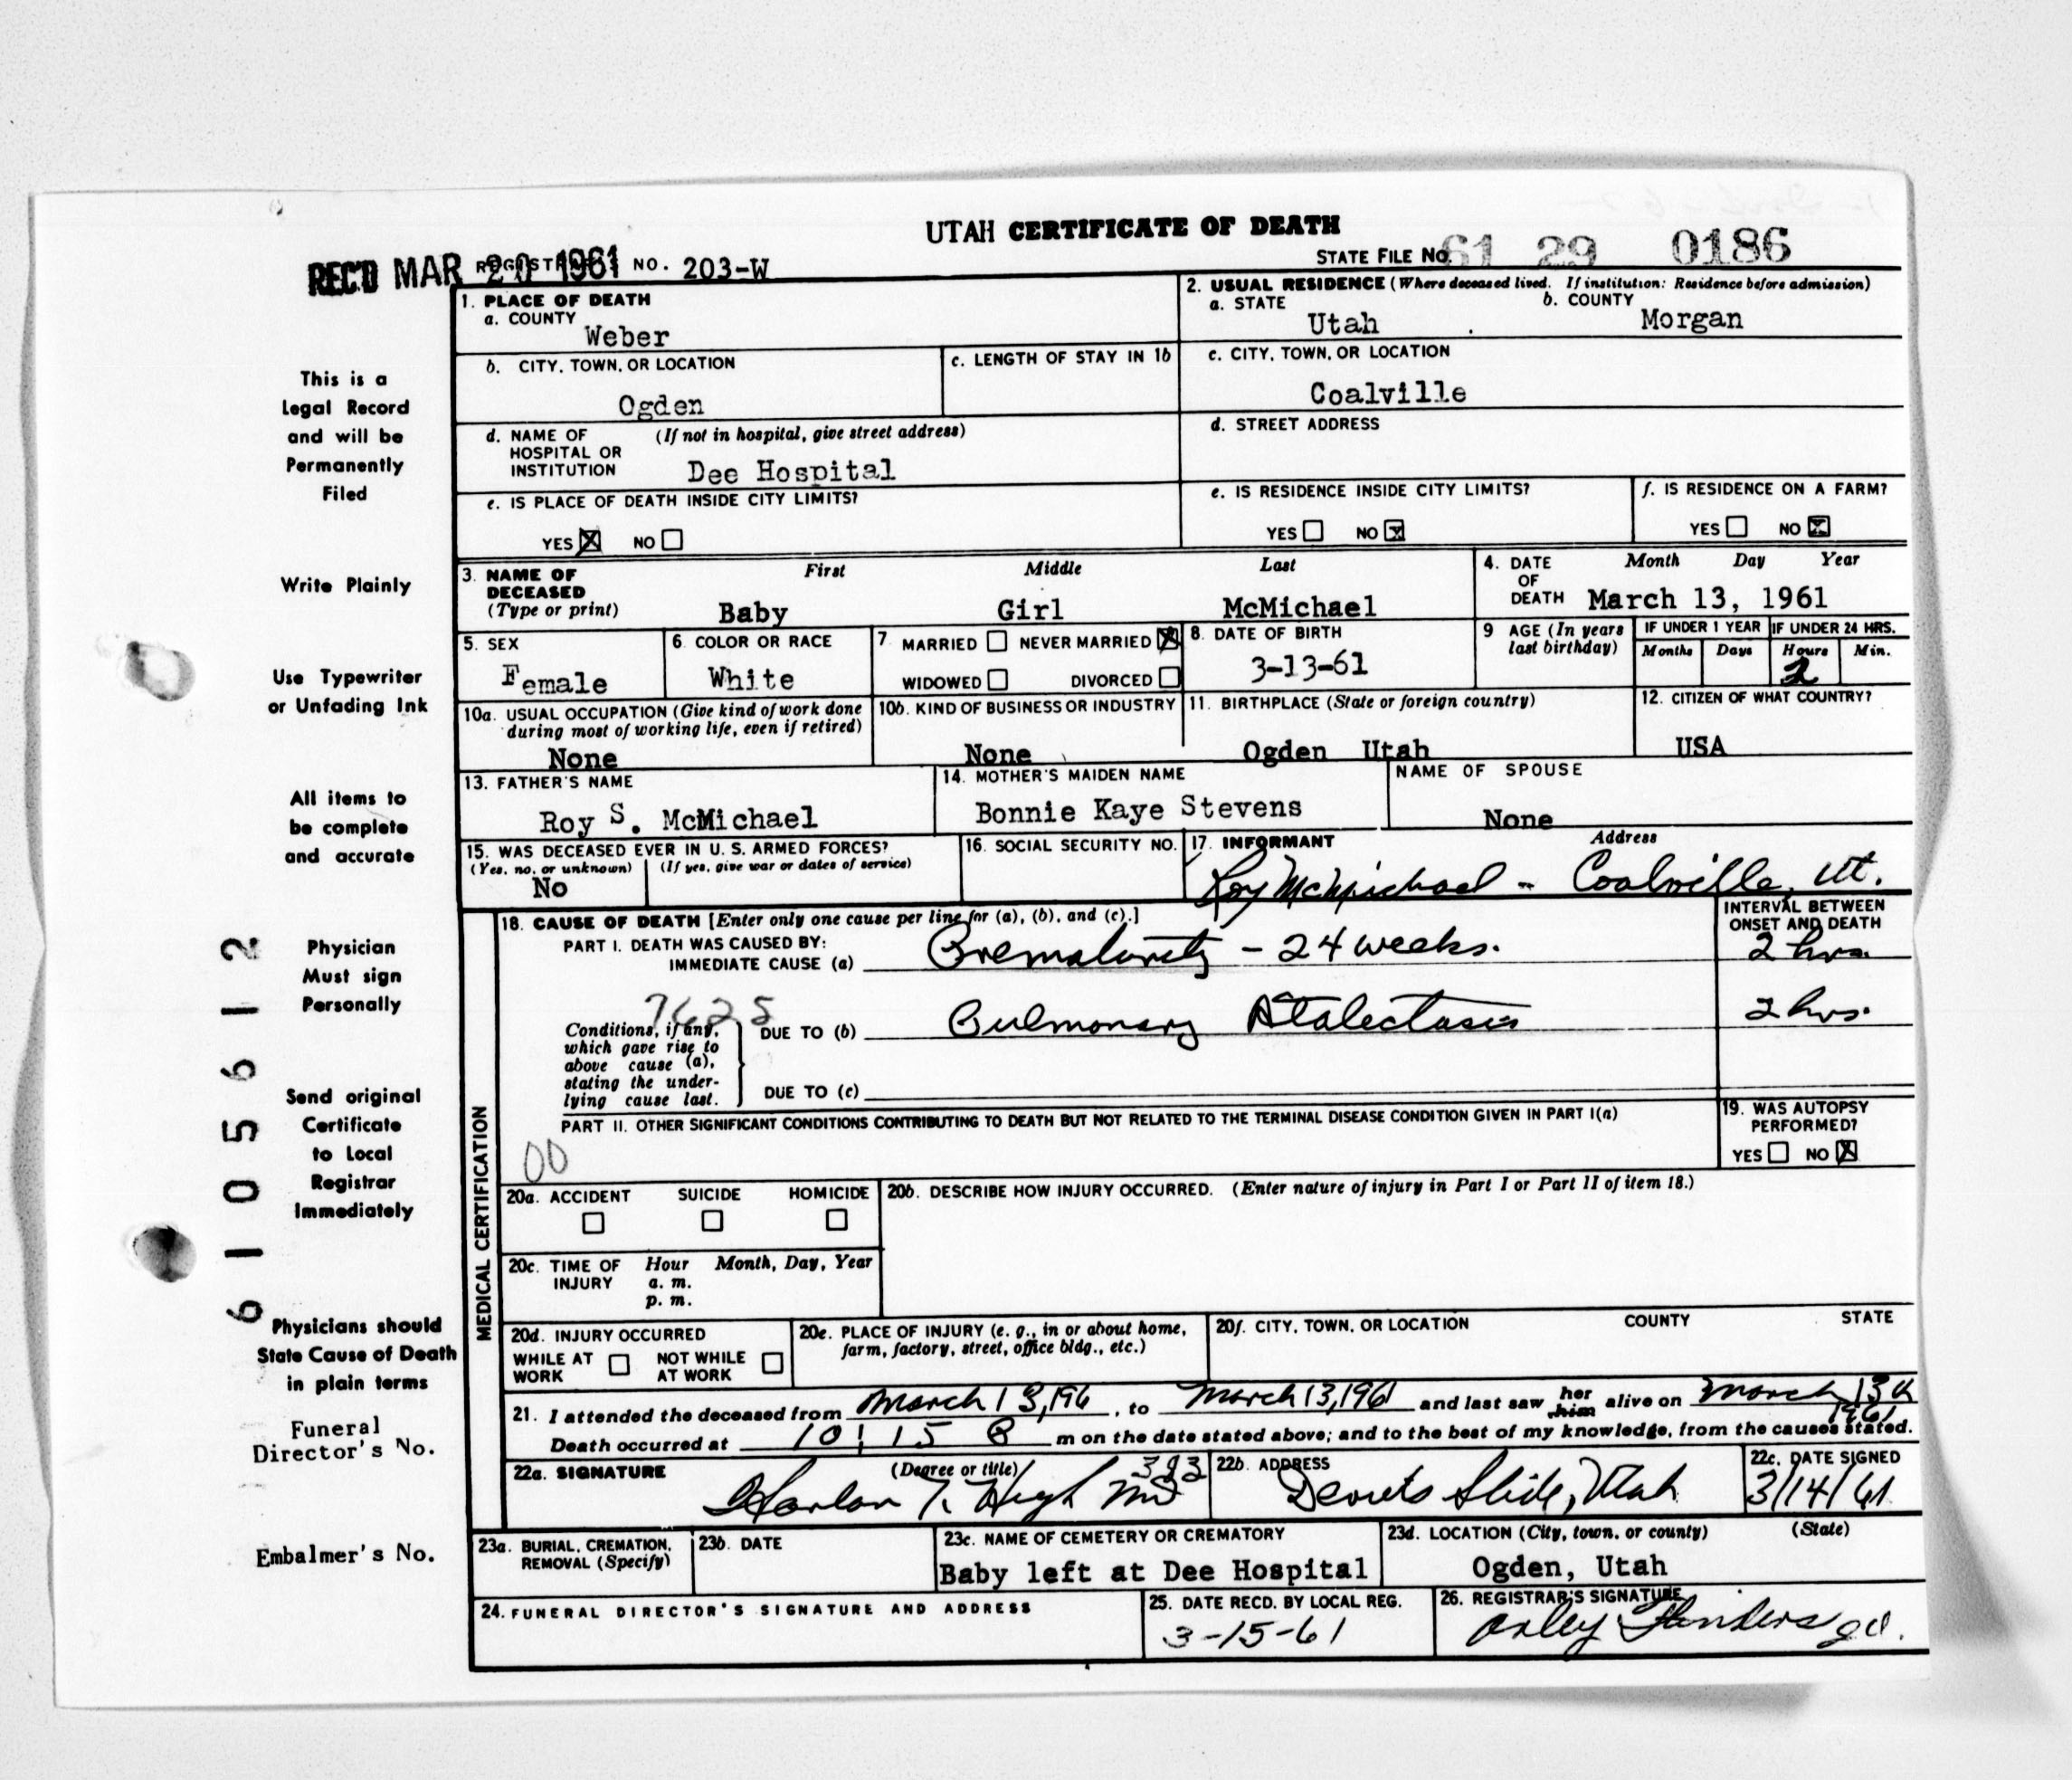 UTAH CERTIFICATE OF DEATH
REC'D MAR 20 1961
REGISTRAR'S NO. 203-W
STATE FILE NO. 61 29 0186
This is a
Legal Record
and will be
Permanently
Filed
Write Plainly
Use Typewriter
or Unfading Ink
All items to
be complete
and accurate
Physician
Must sign
Personally
Send original
Certificate
to Local
Registrar
Immediately
Physicians should
State Cause of Death
in plain terms
Funeral
Director's No.
Embalmer's No.
61056 12
1. PLACE OF DEATH
a. COUNTY
Weber
2. USUAL RESIDENCE (Where deceased lived. If institution: Residence before admission)
a. STATE b. COUNTY
Utah . Morgan
b. CITY, TOWN, OR LOCATION
Ogden
c. LENGTH OF STAY IN 1b
c. CITY, TOWN, OR LOCATION
Coalville
d. NAME OF (If not in hospital, give street address)
HOSPITAL OR
INSTITUTION Dee Hospital
d. STREET ADDRESS
e. IS PLACE OF DEATH INSIDE CITY LIMITS?
YES X NO
e. IS RESIDENCE INSIDE CITY LIMITS?
YES NO X
f. IS RESIDENCE ON A FARM?
YES NO X
3. NAME OF First Middle Last
DECEASED
(Type or print) Baby Girl McMichael
4. DATE Month Day Year
OF
DEATH March 13, 1961
5. SEX
Female
6. COLOR OR RACE
White
7. MARRIED NEVER MARRIED X
WIDOWED DIVORCED
8. DATE OF BIRTH
3-13-61
9 AGE (In years
last birthday)
IF UNDER 1 YEAR IF UNDER 24 HRS.
Months Days Hours Min.
2
10a. USUAL OCCUPATION (Give kind of work done
during most of working life, even if retired)
None
10b. KIND OF BUSINESS OR INDUSTRY
None
11. BIRTHPLACE (State or foreign country)
Ogden Utah
12. CITIZEN OF WHAT COUNTRY?
USA
13. FATHER'S NAME
Roy S. McMichael
14. MOTHER'S MAIDEN NAME
Bonnie Kaye Stevens
NAME OF SPOUSE
None
15. WAS DECEASED EVER IN U. S. ARMED FORCES?
(Yes, no, or unknown) (If yes, give war or dates of service)
No
16. SOCIAL SECURITY NO.
17. INFORMANT Address
Roy McMichael - Coalville, Ut.
MEDICAL CERTIFICATION
18. CAUSE OF DEATH [Enter only one cause per line for (a), (b), and (c).]
INTERVAL BETWEEN
ONSET AND DEATH
PART I. DEATH WAS CAUSED BY:
IMMEDIATE CAUSE (a) Prematurity - 24 weeks. 2 hrs.
7625
Conditions, if any,
which gave rise to
above cause (a),
stating the under-
lying cause last.
DUE TO (b) Pulmonary Atalectasis 2 hrs.
DUE TO (c)
PART II. OTHER SIGNIFICANT CONDITIONS CONTRIBUTING TO DEATH BUT NOT RELATED TO THE TERMINAL DISEASE CONDITION GIVEN IN PART I(a)
00
19. WAS AUTOPSY
PERFORMED?
YES NO X
20a. ACCIDENT SUICIDE HOMICIDE
20b. DESCRIBE HOW INJURY OCCURRED. (Enter nature of injury in Part I or Part II of item 18.)
20c. TIME OF Hour Month, Day, Year
INJURY a. m.
p. m.
20d. INJURY OCCURRED
WHILE AT NOT WHILE
WORK AT WORK
20e. PLACE OF INJURY (e. g., in or about home,
farm, factory, street, office bldg., etc.)
20f. CITY, TOWN, OR LOCATION COUNTY STATE
21. I attended the deceased from March 13, 196 , to March 13, 1961 and last saw her him alive on March 13th 1961
Death occurred at 10:15 P m on the date stated above; and to the best of my knowledge, from the causes stated.
22a. SIGNATURE (Degree or title)
Harlan T. High MD
22b. ADDRESS
Devils Slide, Utah
22c. DATE SIGNED
3/14/61
23a. BURIAL, CREMATION,
REMOVAL (Specify)
23b. DATE
23c. NAME OF CEMETERY OR CREMATORY
Baby left at Dee Hospital
23d. LOCATION (City, town, or county) (State)
Ogden, Utah
24. FUNERAL DIRECTOR'S SIGNATURE AND ADDRESS
25. DATE RECD. BY LOCAL REG.
3-15-61
26. REGISTRAR'S SIGNATURE